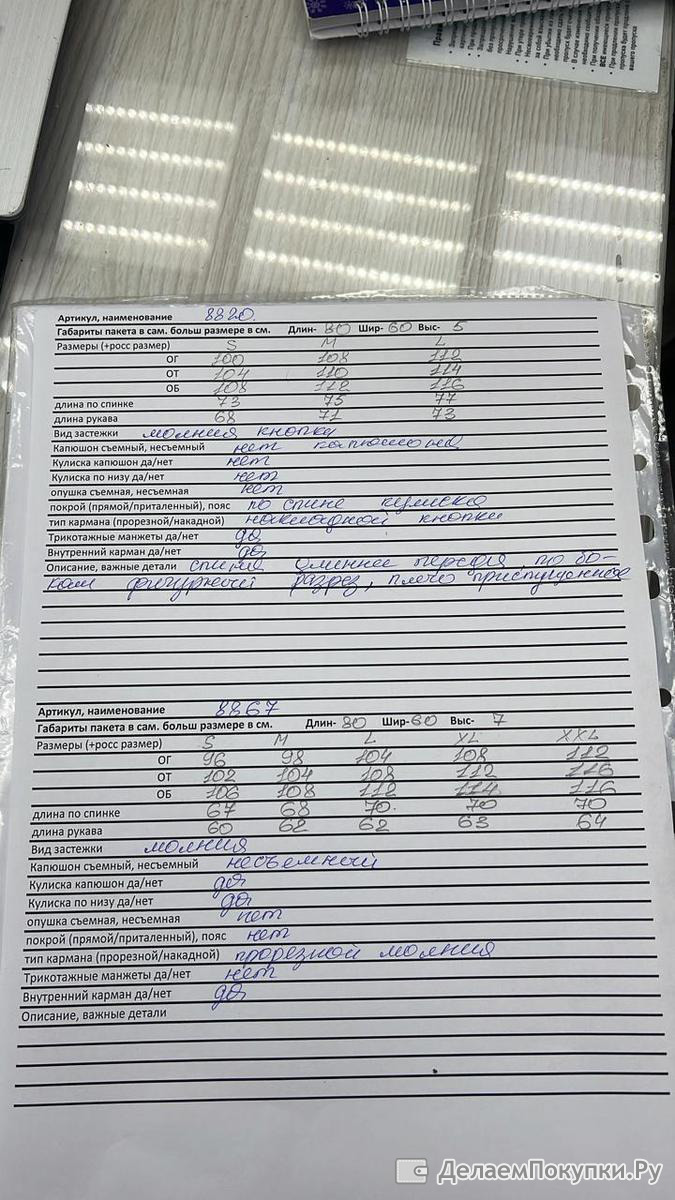 Артикул, наименование 8820
Габариты пакета в сам. больш размере в см. Длин- 80 Шир- 60 Выс- 5
Размеры (+росс размер) S M L
ОГ 100 108 112
ОТ 104 110 114
ОБ 108 112 116
длина по спинке 73 75 77
длина рукава 68 71 73
Вид застежки молния кнопки
Капюшон съемный, несъемный нет капюшона
Кулиска капюшон да/нет нет
Кулиска по низу да/нет нет
опушка съемная, несъемная нет
покрой (прямой/приталенный), пояс по спине кулиска
тип кармана (прорезной/накадной) накладной кнопки
Трикотажные манжеты да/нет да
Внутренний карман да/нет да
Описание, важные детали спинка длиннее переда, по бо-
кам фигурный разрез, плечо приспущенное
Артикул, наименование 8867
Габариты пакета в сам. больш размере в см. Длин- 80 Шир- 60 Выс- 7
Размеры (+росс размер) S M L XL XXL
ОГ 96 98 104 108 112
ОТ 102 104 108 112 116
ОБ 106 108 112 114 116
длина по спинке 67 68 70 70 70
длина рукава 60 62 62 63 64
Вид застежки молния
Капюшон съемный, несъемный несъемный
Кулиска капюшон да/нет да
Кулиска по низу да/нет да
опушка съемная, несъемная нет
покрой (прямой/приталенный), пояс нет
тип кармана (прорезной/накадной) прорезной молния
Трикотажные манжеты да/нет нет
Внутренний карман да/нет да
Описание, важные детали
ДелаемПокупки.Ру